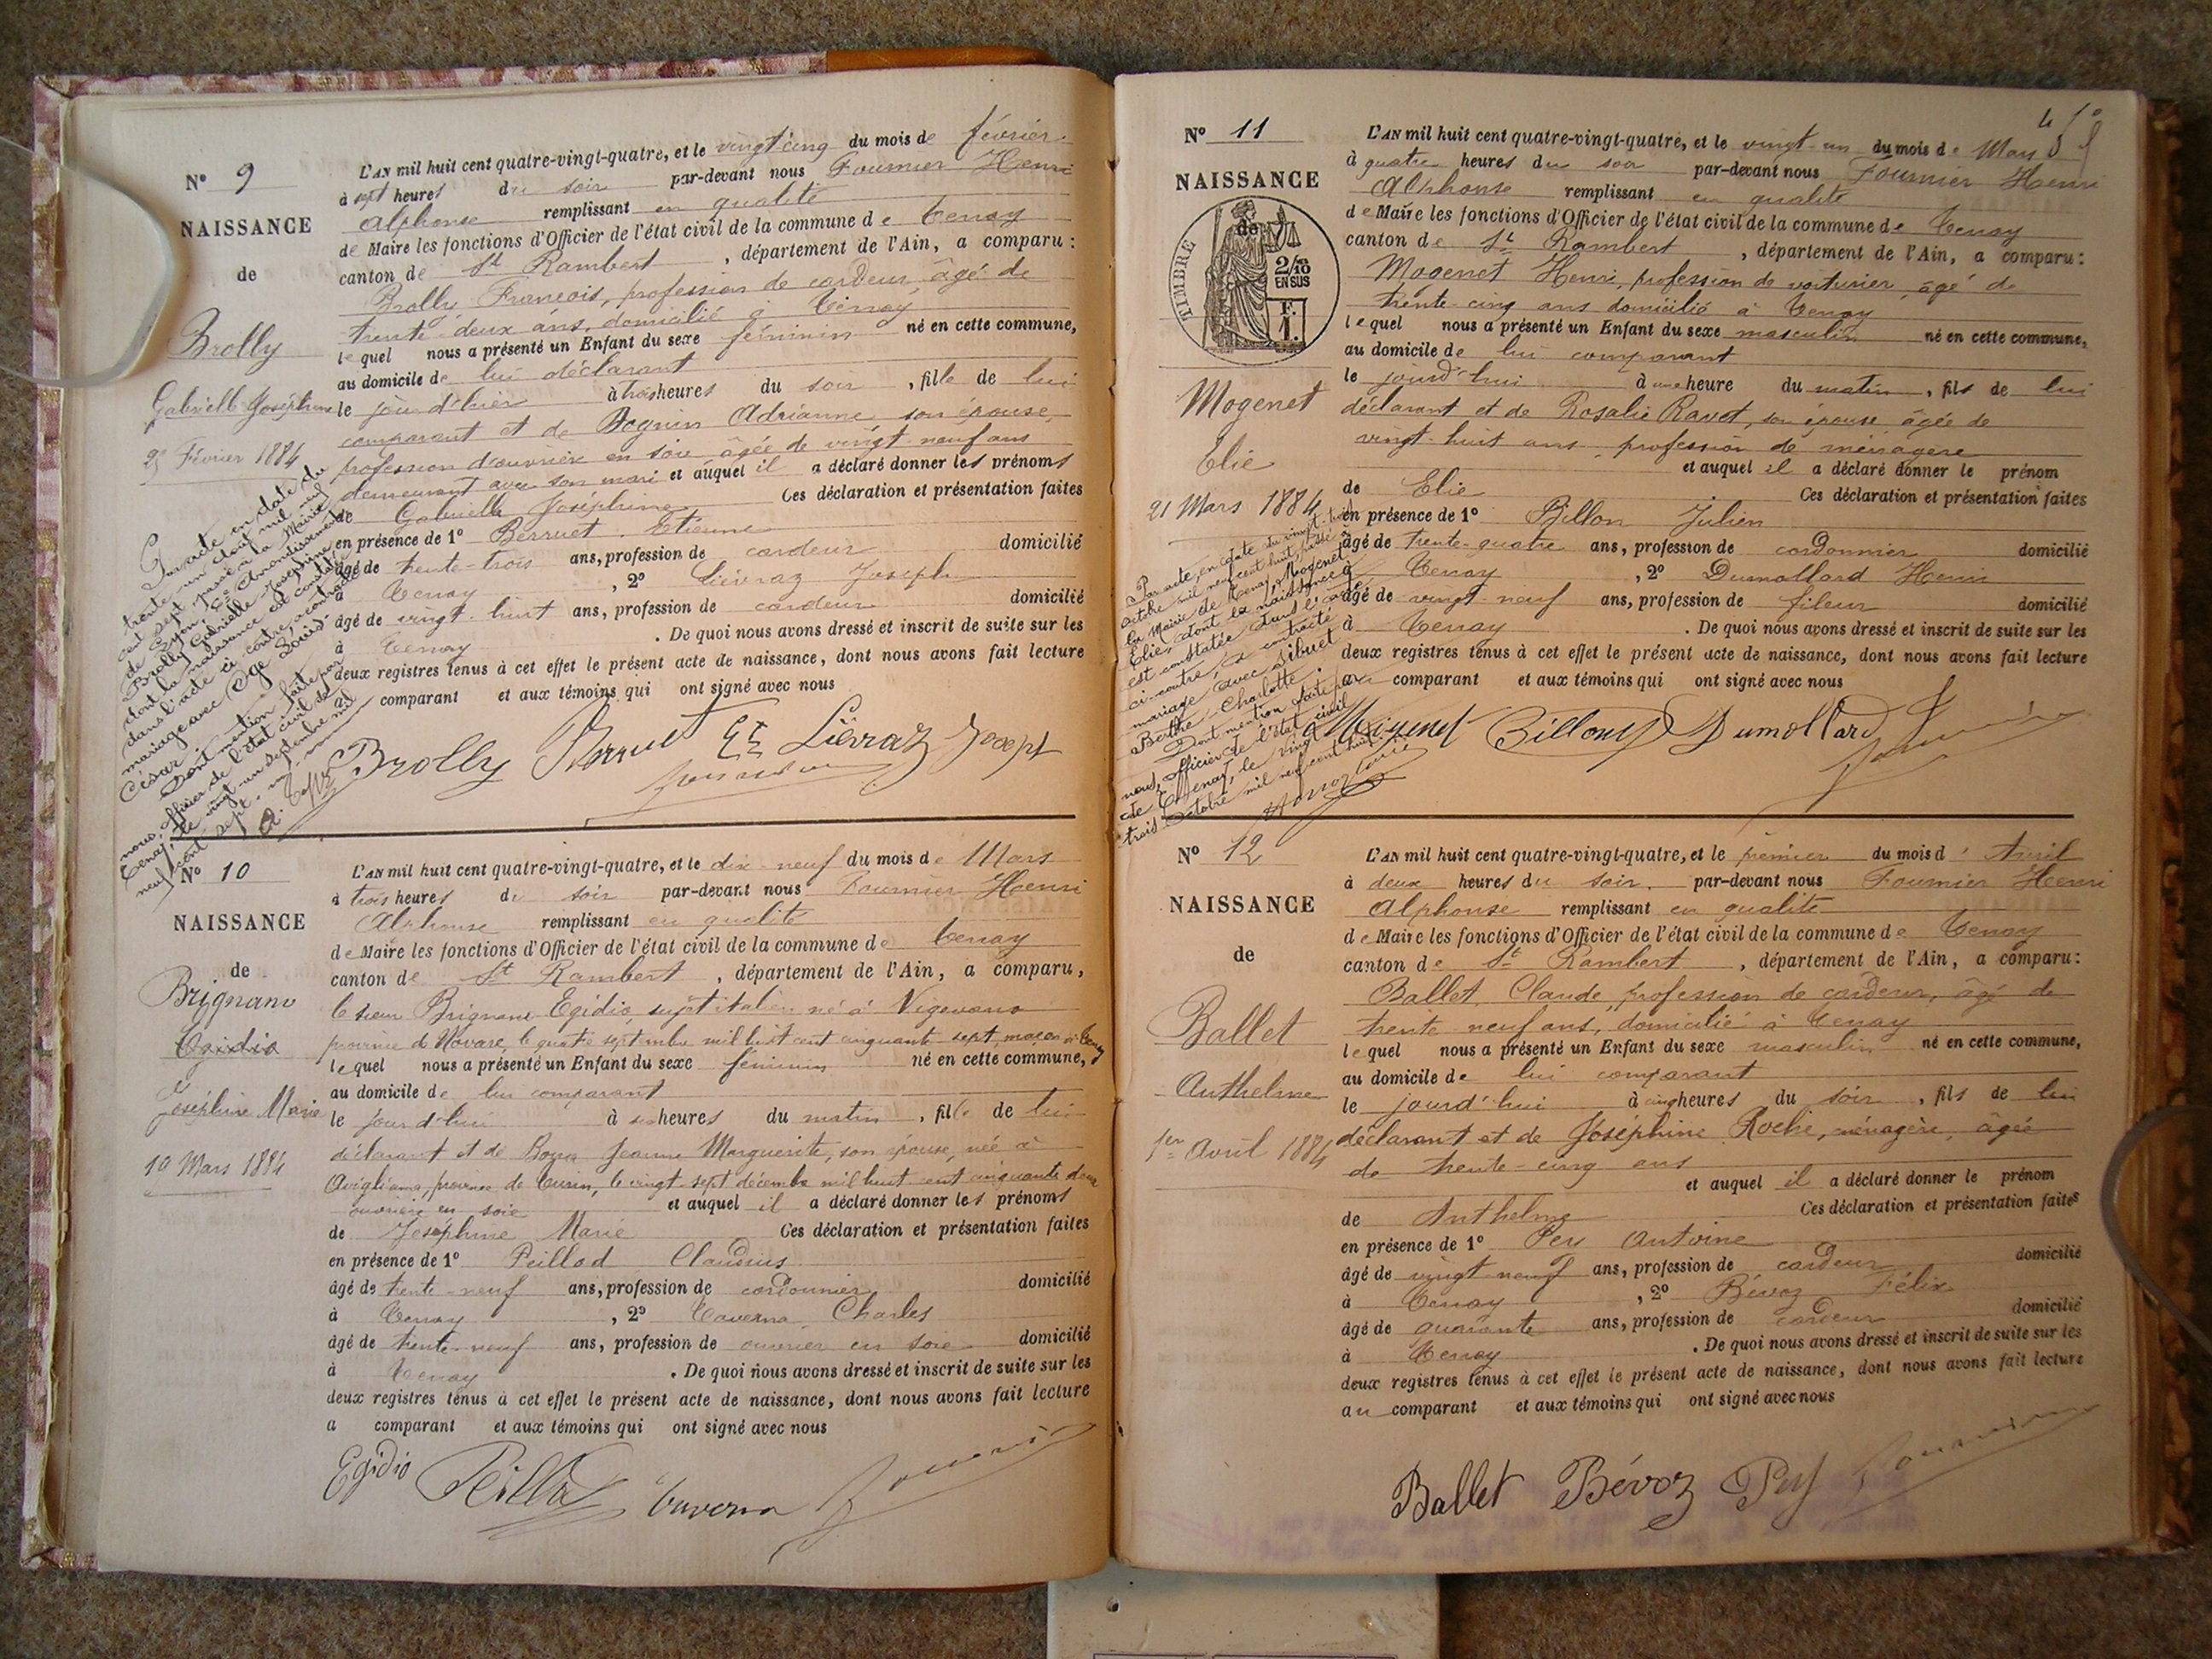 N° 9
NAISSANCE
de
Brolly
Gabrielle Joséphine
25 Février 1884
L'AN mil huit cent quatre-vingt-quatre, et le vingt cinq du mois de février
à sept heures du soir par-devant nous Fournier Henri
Alphonse remplissant en qualité
de Maire les fonctions d'Officier de l'état civil de la commune de Tenay
canton de St Rambert, département de l'Ain, a comparu :
Brolly François, profession de cardeur, âgé de
trente deux ans, domicilié à Tenay
lequel nous a présenté un Enfant du sexe féminin né en cette commune,
au domicile de lui déclarant
le jour d'hier à trois heures du soir, fille de lui
comparant et de Bognin Adrianne, son épouse,
profession d'ouvrière en soie âgée de vingt neuf ans
demeurant avec son mari et auquel il a déclaré donner les prénoms
de Gabrielle Joséphine Ces déclaration et présentation faites
en présence de 1° Berruet Etienne
âgé de trente-trois ans, profession de cardeur domicilié
à Tenay, 2° Liévraz Joseph
âgé de vingt-huit ans, profession de cardeur domicilié
à Tenay. De quoi nous avons dressé et inscrit de suite sur les
deux registres tenus à cet effet le présent acte de naissance, dont nous avons fait lecture
au comparant et aux témoins qui ont signé avec nous
Par acte en date du
trente un août mil neuf
cent sept, passé à la Mairie
de Lyon, 2e Arrondissement,
Brolly Gabrielle Joséphine
dont la naissance est constatée
dans l'acte ci-contre, a contracté
mariage avec Oge Louis
César
Dont mention faite par
nous, officier de l'état civil de
Tenay, le vingt-un septembre mil
neuf cent sept.
Brolly Berruet Et Liévraz Joseph
N° 10
NAISSANCE
de
Brignano
Egidio
Joséphine Marie
19 Mars 1884
L'AN mil huit cent quatre-vingt-quatre, et le dix-neuf du mois de Mars
à trois heures du soir par-devant nous Fournier Henri
Alphonse remplissant en qualité
de Maire les fonctions d'Officier de l'état civil de la commune de Tenay
canton de St Rambert, département de l'Ain, a comparu,
le sieur Brignano Egidio, sujet italien né à Vigevano
province de Novare, le quatre septembre mil huit cent cinquante sept, maçon à Tenay
lequel nous a présenté un Enfant du sexe féminin né en cette commune,
au domicile de lui comparant
le jour d'hui à six heures du matin, fille de lui
déclarant et de Jeanne Marguerite, son épouse, née à
Avigliana, province de Turin, le vingt sept décembre mil huit cent cinquante deux
ouvrière en soie et auquel il a déclaré donner les prénoms
de Joséphine Marie Ces déclaration et présentation faites
en présence de 1° Peillod Claudius
âgé de trente-neuf ans, profession de cordonnier domicilié
à Tenay, 2° Taverna Charles
âgé de trente-neuf ans, profession de ouvrier en soie domicilié
à Tenay. De quoi nous avons dressé et inscrit de suite sur les
deux registres tenus à cet effet le présent acte de naissance, dont nous avons fait lecture
a comparant et aux témoins qui ont signé avec nous
Egidio Peillod Taverna
N° 11
NAISSANCE
de
TIMBRE
2/10
EN SUS
F.
1.
Mogenet
Elie
21 Mars 1884
L'AN mil huit cent quatre-vingt-quatre, et le vingt-un du mois de Mars
à quatre heures du soir par-devant nous Fournier Henri
Alphonse remplissant en qualité
de Maire les fonctions d'Officier de l'état civil de la commune de Tenay
canton de St Rambert, département de l'Ain, a comparu :
Mogenet Henri, profession de voiturier, âgé de
trente cinq ans domicilié à Tenay
lequel nous a présenté un Enfant du sexe masculin né en cette commune,
au domicile de lui comparant
le jourd'hui à une heure du matin, fils de lui
déclarant et de Rosalie Ravot, son épouse âgée de
vingt-huit ans, profession de ménagère
et auquel il a déclaré donner le prénom
de Elie Ces déclaration et présentation faites
en présence de 1° Billon Julien
âgé de trente-quatre ans, profession de cordonnier domicilié
à Tenay, 2° Dumollard Henri
âgé de vingt-neuf ans, profession de fileur domicilié
à Tenay. De quoi nous avons dressé et inscrit de suite sur les
deux registres tenus à cet effet le présent acte de naissance, dont nous avons fait lecture
au comparant et aux témoins qui ont signé avec nous
Par acte, en date du vingt-trois
octobre mil neuf cent huit, passé à
la Mairie de Tenay, Mogenet
Elie, dont la naissance
est constatée dans l'acte
ci-contre, a contracté
mariage avec Sibuet
Berthe Charlotte
Dont mention faite par
nous, officier de l'état civil
de Tenay, le vingt
trois octobre mil neuf cent huit
Mogenet Billon Dumollard
N° 12
NAISSANCE
de
Ballet
Anthelme
1er Avril 1884
L'AN mil huit cent quatre-vingt-quatre, et le premier du mois d'Avril
à deux heures du soir, par-devant nous Fournier Henri
Alphonse remplissant en qualité
de Maire les fonctions d'Officier de l'état civil de la commune de Tenay
canton de St Rambert, département de l'Ain, a comparu :
Ballet Claude, profession de cardeur, âgé de
trente neuf ans, domicilié à Tenay
lequel nous a présenté un Enfant du sexe masculin né en cette commune,
au domicile de lui comparant
le jourd'hui à cinq heures du soir, fils de lui
déclarant et de Joséphine Roche, ménagère, âgée
de trente-cinq ans
et auquel il a déclaré donner le prénom
de Anthelme Ces déclaration et présentation faites
en présence de 1° Pey Antoine
âgé de vingt neuf ans, profession de cardeur domicilié
à Tenay, 2° Bévoz Félix
âgé de quarante ans, profession de cardeur domicilié
à Tenay. De quoi nous avons dressé et inscrit de suite sur les
deux registres tenus à cet effet le présent acte de naissance, dont nous avons fait lecture
au comparant et aux témoins qui ont signé avec nous
Ballet Bévoz Pey